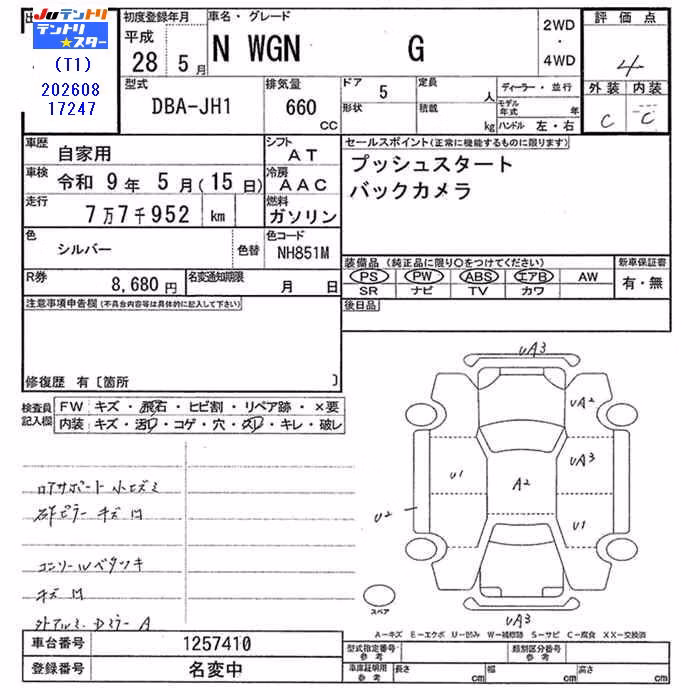 Juテントリ
テントリ★スター
(T1)
202608
17247
初度登録年月
平成
28 5月
車名・グレード
N WGN G
2WD
・
4WD
評価点
4
外装 内装
C C
型式
DBA-JH1
排気量
660
CC
ドア
5
形状
定員
人
積載
kg
ディーラー・並行
モデル年式 年
ハンドル 左・右
車歴
自家用
シフト
AT
車検
令和 9年 5月(15日)
冷房
AAC
走行
7万7千952 km
燃料
ガソリン
色
シルバー
色替
色コード
NH851M
R券
8,680円
名変通知期限
月 日
セールスポイント(正常に機能するものに限ります)
プッシュスタート
バックカメラ
装備品(純正品に限り○をつけてください)
新車保証書
PS PW ABS エアB AW
SR ナビ TV カワ
有・無
後日品
注意事項申告欄(不具合内容等は具体的に記入して下さい)
修復歴 有〔箇所 〕
検査員
記入欄
FW キズ・飛石・ヒビ割・リペア跡・×要
内装 キズ・汚レ・コゲ・穴・スレ・キレ・破レ
ロアサポート小ヒズミ
キズ
コンソールベタツキ
キズ
外アルミ. Dミラー A
UA3
UA2
U1
UA3
A2
U2
U1
UA3
スペア
A―キズ E―エクボ U―凹み W―補修跡 S―サビ C―腐食 XX―交換済
車台番号 1257410
登録番号 名変中
型式指定番号
参考
類別区分番号
参考
車庫証明用
参考
長さ cm 幅 cm 高さ cm